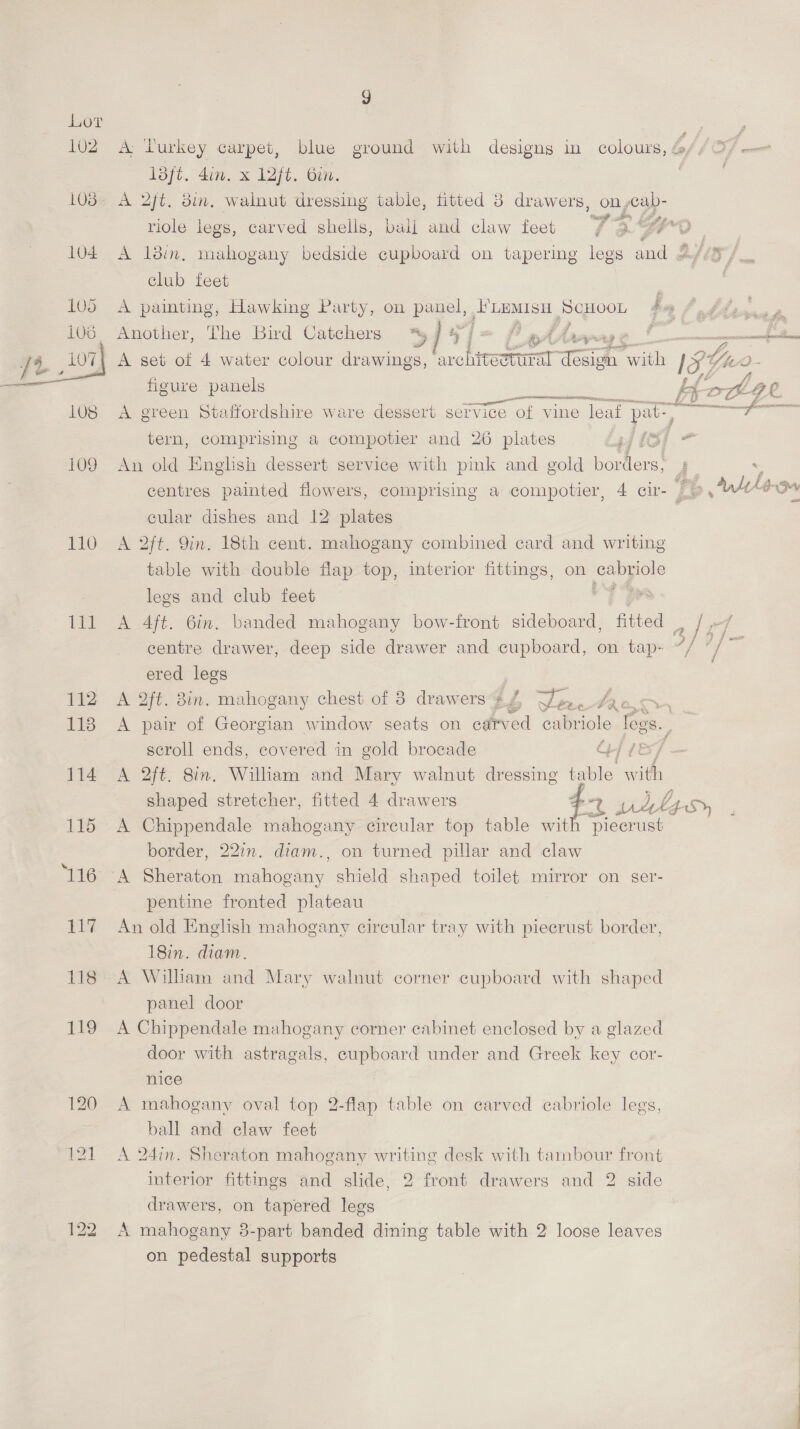 9
Lot
102 A Turkey carpet, blue ground with designs in colours,
13ft. 4in. x 12ft. 6in.
103 A 2ft. 3in. walnut dressing table, fitted 3 drawers, on cab-
riole legs, carved shells, ball and claw feet
104 A 13in. mahogany bedside cupboard on tapering legs and
club feet
105 A painting, Hawking Party, on panel, Flemish School
106 Another, The Bird Catchers
107 A set of 4 water colour drawings, architectural design with
figure panels
108 A green Staffordshire ware dessert service of vine leaf pat-
tern, comprising a compotier and 26 plates
109 An old English dessert service with pink and gold borders,
centres painted flowers, comprising a compotier, 4 cir-
cular dishes and 12 plates
110 A 2ft. 9in. 18th cent. mahogany combined card and writing
table with double flap top, interior fittings, on cabriole
legs and club feet
111 A 4ft. 6in. banded mahogany bow-front sideboard, fitted
centre drawer, deep side drawer and cupboard, on tap-
ered legs
112 A 2ft. 3in. mahogany chest of 3 drawers
113 A pair of Georgian window seats on carved cabriole legs.
scroll ends, covered in gold brocade
114 A 2ft. 8in. William and Mary walnut dressing table with
shaped stretcher, fitted 4 drawers
115 A Chippendale mahogany circular top table with piecrust
border, 22in. diam., on turned pillar and claw
116 A Sheraton mahogany shield shaped toilet mirror on ser-
pentine fronted plateau
117 An old English mahogany circular tray with piecrust border,
18in. diam.
118 A William and Mary walnut corner cupboard with shaped
panel door
119 A Chippendale mahogany corner cabinet enclosed by a glazed
door with astragals, cupboard under and Greek key cor-
nice
120 A mahogany oval top 2-flap table on carved cabriole legs,
ball and claw feet
121 A 24in. Sheraton mahogany writing desk with tambour front
interior fittings and slide, 2 front drawers and 2 side
drawers, on tapered legs
122 A mahogany 3-part banded dining table with 2 loose leaves
on pedestal supports